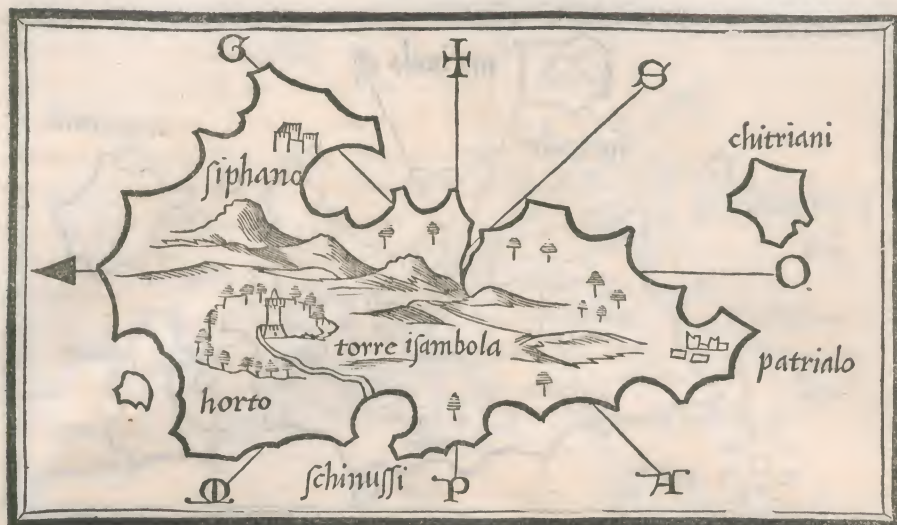 G
S
chitriani
ſiphano
O
torre iſambola
patrialo
horto
ſchinuſſi
P
A